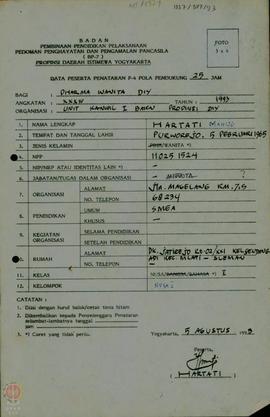 BADAN
PEMBINAAN PENDIDIKAN PELAKSANAAN
PEDOMAN PENGHAYATAN DAN PENGAMALAN PANCASILA
( BP-7 )
PROPINSI DAERAH ISTIMEWA YOGYAKARTA
FOTO
DATA PESERTA PENATARAN P-4 POLA PENDUKUNG 25 JAM
BAGI : DHARMA WANITA DIY
ANGKATAN : TAHUN : 1993
ORGANISASI : UNIT KANWIL I PROPINSI DIY
1. NAMA LENGKAP HARTATI
2. TEMPAT DAN TANGGAL LAHIR PURWOREJO, 5 PEBRUARI 1965
3. JENIS KELAMIN WANITA *)
4. NPP 11025 1524
5. NIP/NRP ATAU IDENTITAS LAIN *) -
6. JABATAN/TUGAS DALAM ORGANISASI
7. ORGANISASI ALAMAT JLN. MAGELANG KM. 7,5
NO. TELEPON 68234
8. PENDIDIKAN UMUM SMEA
KHUSUS -
9. KEGIATAN ORGANISASI SELAMA PENDIDIKAN -
SETELAH PENDIDIKAN -
10. RUMAH ALAMAT
KEC. MLATI - SLEMAN
NO. TELEPON -
11. KELAS I
12. KELOMPOK
CATATAN :
1. Diisi dengan huruf balok/cetak tinta hitam
2. Dikembalikan kepada Penyelenggara Penataran
selambat-lambatnya tanggal
3. *) Coret yang tidak perlu.
Yogyakarta, 5 AGUSTUS 1993
Peserta,
( HARTATI )